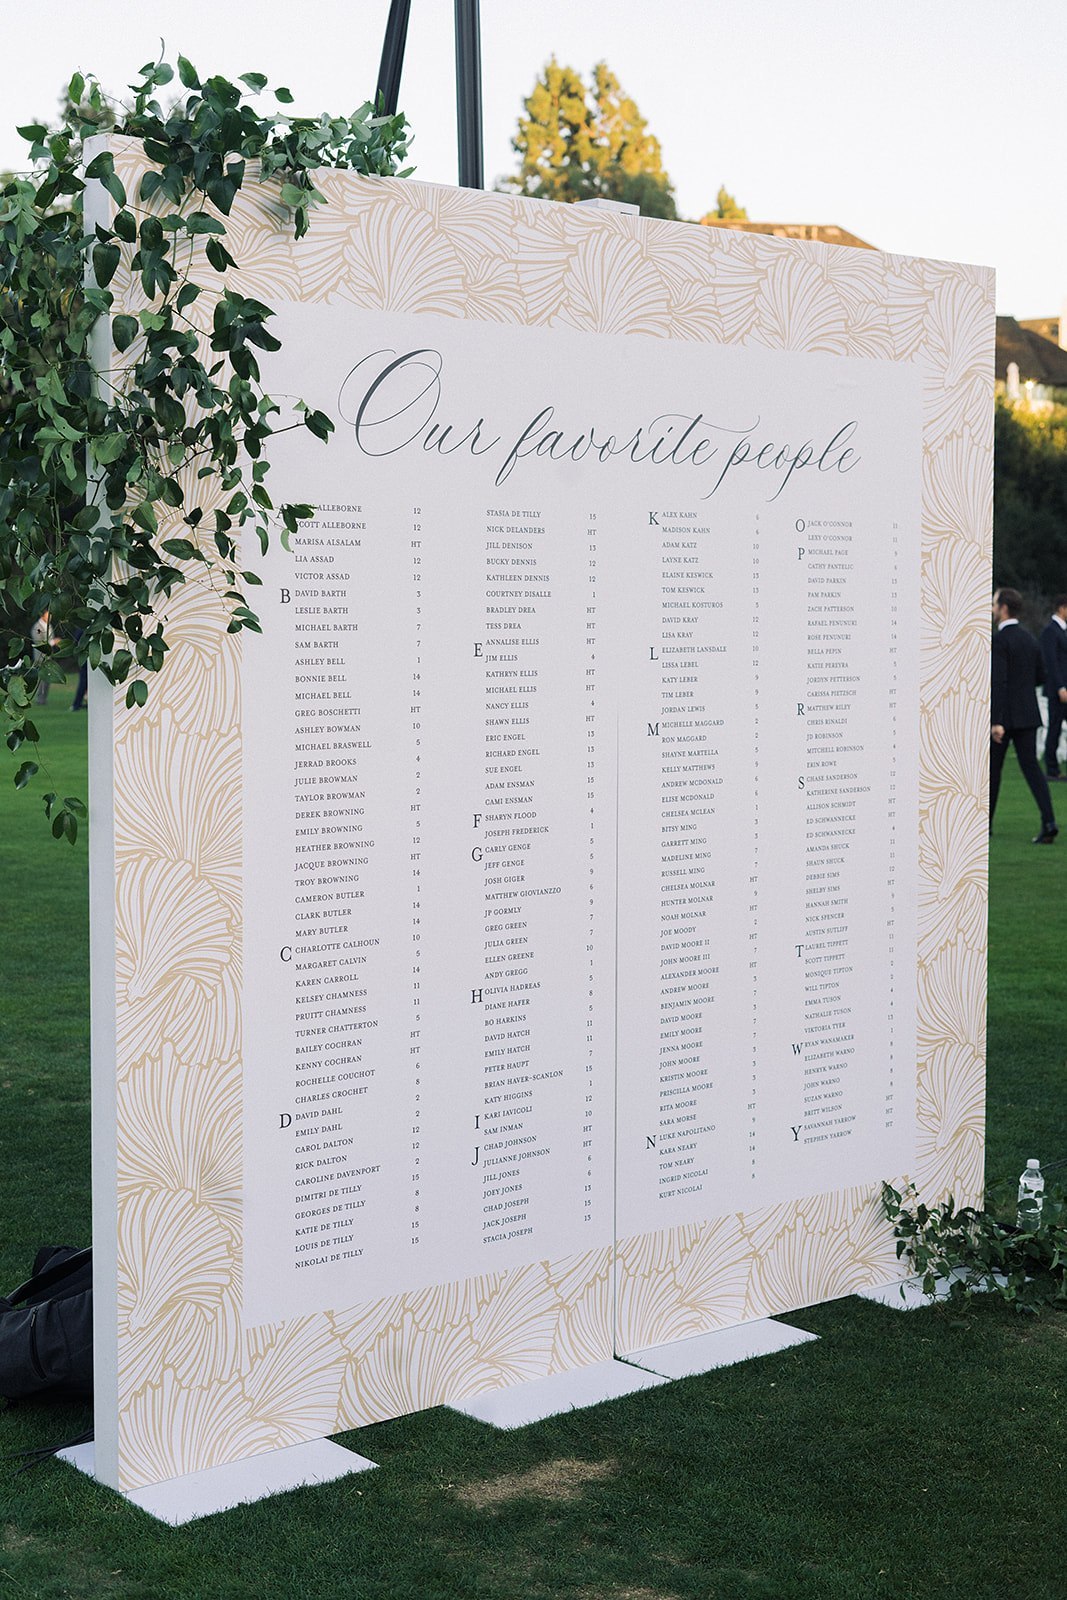 Our favorite people
ALLEBORNE 12
SCOTT ALLEBORNE 12
MARISA ALSALAM HT
LIA ASSAD 12
VICTOR ASSAD 12
B DAVID BARTH 3
LESLIE BARTH 3
MICHAEL BARTH 7
SAM BARTH 7
ASHLEY BELL 1
BONNIE BELL 14
MICHAEL BELL 14
GREG BOSCHETTI HT
ASHLEY BOWMAN 10
MICHAEL BRASWELL 5
JERRAD BROOKS 4
JULIE BROWMAN 2
TAYLOR BROWMAN 2
DEREK BROWNING HT
EMILY BROWNING 5
HEATHER BROWNING 12
JACQUE BROWNING HT
TROY BROWNING 14
CAMERON BUTLER 1
CLARK BUTLER 14
MARY BUTLER 14
C CHARLOTTE CALHOUN 10
MARGARET CALVIN 5
KAREN CARROLL 14
KELSEY CHAMNESS 11
PRUITT CHAMNESS 11
TURNER CHATTERTON 5
BAILEY COCHRAN HT
KENNY COCHRAN HT
ROCHELLE COUCHOT 6
CHARLES CROCHET 8
D DAVID DAHL 2
EMILY DAHL 2
CAROL DALTON 12
RICK DALTON 12
CAROLINE DAVENPORT 2
DIMITRI DE TILLY 15
GEORGES DE TILLY 8
KATIE DE TILLY 8
LOUIS DE TILLY 15
NIKOLAI DE TILLY 15
STASIA DE TILLY 15
NICK DELANDERS HT
JILL DENISON 13
BUCKY DENNIS 12
KATHLEEN DENNIS 12
COURTNEY DISALLE 1
BRADLEY DREA HT
TESS DREA HT
E ANNALISE ELLIS HT
JIM ELLIS 4
KATHRYN ELLIS HT
MICHAEL ELLIS HT
NANCY ELLIS 4
SHAWN ELLIS HT
ERIC ENGEL 13
RICHARD ENGEL 13
SUE ENGEL 13
ADAM ENSMAN 15
CAMI ENSMAN 15
F SHARYN FLOOD 4
JOSEPH FREDERICK 1
G CARLY GENGE 5
JEFF GENGE 5
JOSH GIGER 9
MATTHEW GIOVIANZZO 6
JP GORMLY 9
GREG GREEN 7
JULIA GREEN 7
ELLEN GREENE 10
ANDY GREGG 1
H OLIVIA HADREAS 5
DIANE HAFER 8
BO HARKINS 5
DAVID HATCH 11
EMILY HATCH 11
PETER HAUPT 7
BRIAN HAVER-SCANLON 15
KATY HIGGINS 1
I KARI IAVICOLI 12
SAM INMAN 10
J CHAD JOHNSON HT
JULIANNE JOHNSON HT
JILL JONES 6
JOEY JONES 6
CHAD JOSEPH 13
JACK JOSEPH 15
STACIA JOSEPH 13
K ALEX KAHN 6
MADISON KAHN 6
ADAM KATZ 10
LAYNE KATZ 10
ELAINE KESWICK 13
TOM KESWICK 13
MICHAEL KOSTUROS 5
DAVID KRAY 12
LISA KRAY 12
L ELIZABETH LANSDALE 10
LISSA LEBEL 12
KATY LEBER 9
TIM LEBER 9
JORDAN LEWIS 5
M MICHELLE MAGGARD 2
RON MAGGARD 2
SHAYNE MARTELLA 5
KELLY MATTHEWS 9
ANDREW MCDONALD 6
ELISE MCDONALD 6
CHELSEA MCLEAN 1
BITSY MING 3
GARRETT MING 3
MADELINE MING 7
RUSSELL MING 7
CHELSEA MOLNAR HT
HUNTER MOLNAR 9
NOAH MOLNAR HT
JOE MOODY 2
DAVID MOORE II HT
JOHN MOORE III 7
ALEXANDER MOORE HT
ANDREW MOORE 7
BENJAMIN MOORE 7
DAVID MOORE 3
EMILY MOORE 7
JENNA MOORE 7
JOHN MOORE 3
KRISTIN MOORE 3
PRISCILLA MOORE 3
RITA MOORE 3
SARA MORSE HT
N LUKE NAPOLITANO 9
KARA NEARY 14
TOM NEARY 14
INGRID NICOLAI 8
KURT NICOLAI 8
O JACK O'CONNOR 11
LEXY O'CONNOR 11
P MICHAEL PAGE 9
CATHY PANTELIC 6
DAVID PARKIN 13
PAM PARKIN 13
ZACH PATTERSON 10
RAFAEL PENUNURI 14
ROSE PENUNURI 14
BELLA PEPIN HT
KATIE PEREYRA 5
JORDYN PETTERSON 5
CARISSA PIETZSCH HT
R MATTHEW RILEY HT
CHRIS RINALDI 6
JD ROBINSON 5
MITCHELL ROBINSON 4
ERIN ROWE 5
S CHASE SANDERSON 12
KATHERINE SANDERSON 12
ALLISON SCHMIDT HT
ED SCHWANNECKE HT
ED SCHWANNECKE 4
AMANDA SHUCK 11
SHAUN SHUCK 11
DEBBIE SIMS 12
SHELBY SIMS HT
HANNAH SMITH 9
NICK SPENCER HT
AUSTIN SUTLIFF HT
T LAUREL TIPPETT 11
SCOTT TIPPETT 11
MONIQUE TIPTON 2
WILL TIPTON 2
EMMA TUSON 11
NATHALIE TUSON 11
VIKTORIA TYER 13
W RYAN WANAMAKER 1
ELIZABETH WARNO 8
HENRYK WARNO 8
JOHN WARNO 8
SUZAN WARNO 8
BRITT WILSON HT
Y SAVANNAH YARROW HT
STEPHEN YARROW HT